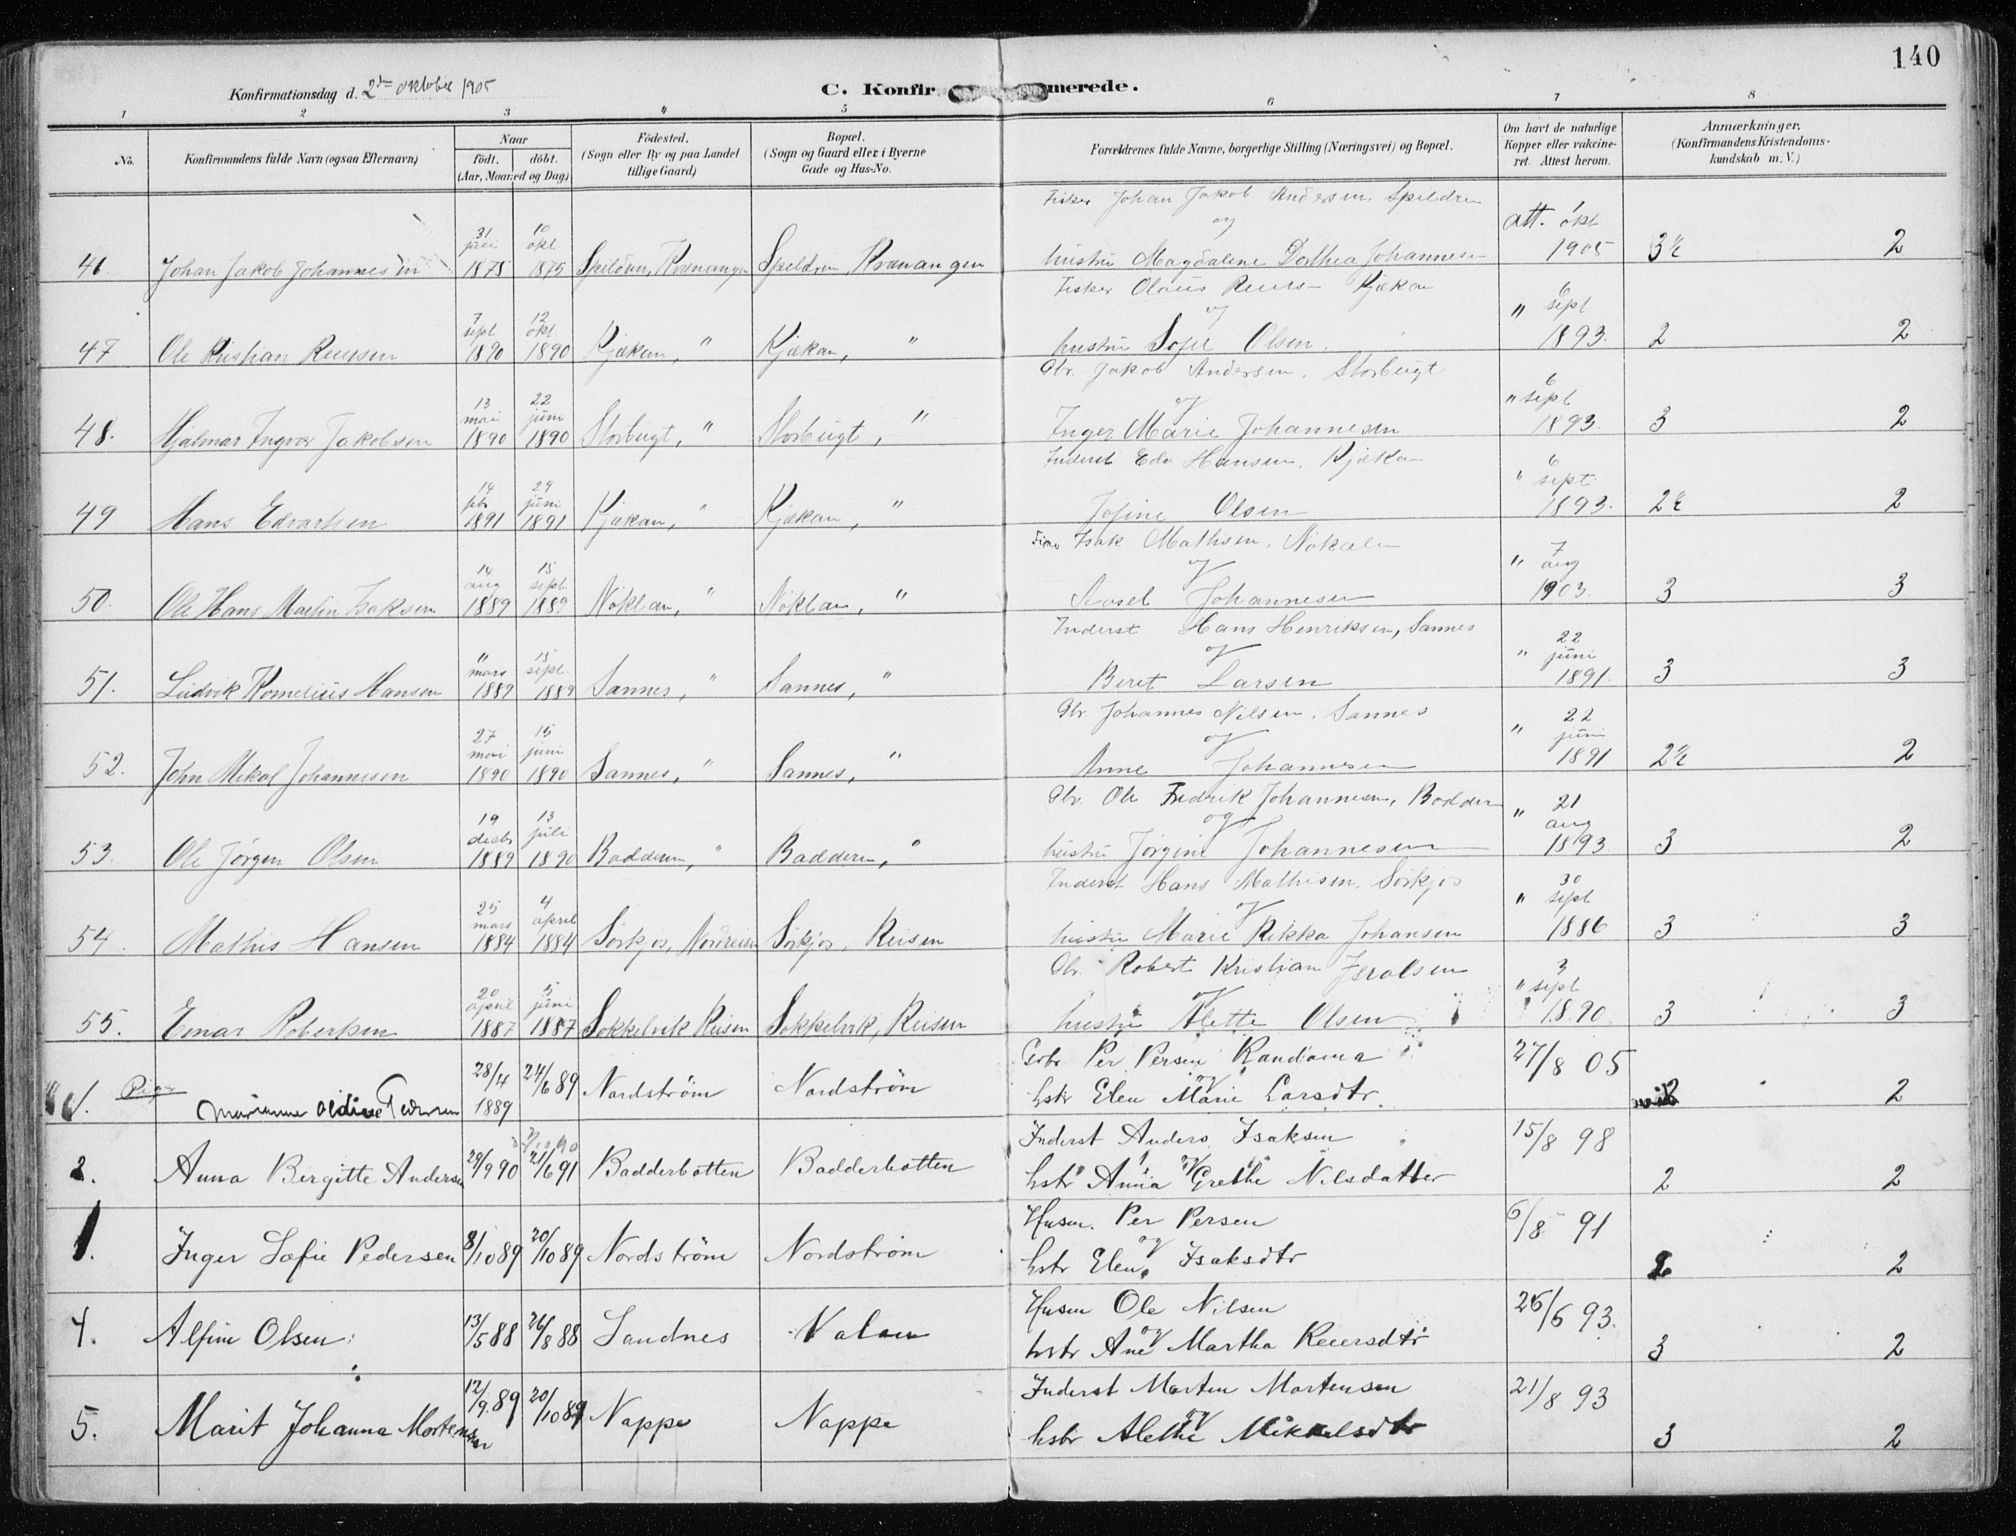 140
Konfirmationsdag d. 2den oktober 1905
C. Konfir merede.
1 2 3 4 5 6 7 8
No. Konfirmandens fulde Navn (ogsaa Efternavn) Naar født. døbt. (Aar, Maaned og Dag) Födested. (Sogn eller By og paa Landet tillige Gaard) Bopæl. (Sogn og Gaard eller i Byerne Gade og Hus-No. Forældrenes fulde Navne, borgerlige Stilling (Næringsvei) og Bopæl. Om havt de naturlige Kopper eller vakcineret. Attest herom. Anmærkninger. (Konfirmandens Kristendomskundskab m. V.)
Fisker Johan Jakob Andersen Spildren
og
46. Johan Jakob Johannesen 31 1875 10 okt. 1875 Spildren, Kvænangen Spildren, Kvænangen hustru Magdalene Dorthea Johannesen att. okt 1905 3½ 2
Fisker Olaus Kjækan
og
47 Ole Kristian 7 sept 1890 12 okt. 1890 Kjækan, " Kjækan, " hustru Sofie Olsen. " 6 sept 1893. 2 2
Gbr. Jakob Andersen. Storbugt
og
48. Hjalmar Ingvor Jakobsen 13 mai 1890 22 juni 1890 Storbugt, " Storbugt, " Inger Marie Johannesen " 6 sept 1893. 3 2
Inderst Edv Hansen. Kjækan
49 Hans Edvartsen 14 feb 1891 29 juni 1891 Kjækan, " Kjækan, " Josine Olsen " 6 sept. 1893. 2½ 2
Isak Mathisen. Nøklan
og
50. Ole Hans Martin Isaksen 14 aug 1889 15 sept. 1889 Nøklan, " Nøklan, " Johannesen " 7 aug 1903. 3 3
Inderst Hans Henriksen, Sannes
og
51. Ludvik Kornelius Hansen 11 mars 1889 15 sept. 1889 Sannes, " Sannes, " Beret Larsen " 22 juni 1891. 3 3
Gbr. Johannes Nilsen. Sannes
og
52. John Mikal Johannesen 27 mai 1890 15 juni 1890 Sannes, " Sannes, " Anne Johannesen " 22 juni 1891 2½ 2
Gbr. Ole Fredrik Johannesen, Badderen
og
53. Ole Jørgen Olsen 19 decbr 1889 13 juli 1890 Badderen, " Badderen, " hustru Jørgine Johannesen " 21 aug 1893. 3 2
Inderst Hans Mathisen. Sørkjos
og
54. Mathis Hansen 25 mars 1884 4 april 1884 Sørkjos, Nordreisen Sørkjos, Reisen hustru Marie Rikka Johansen " 30 sept 1886 3 3
Gbr. Robert Kristian Israelsen
og
55. Einar Robertsen 20 april 1887 5 juni 1887 Sokkelvik Reisen Sokkelvik, Reisen hustru Alette Olsen " 3 sept 1890 3 3
Gbr Per Persen Randama
og
1. Piger Marianne Oldine Pedersen 28/4 1889 24/6 89 Nordstrøm Nordstrøm hstr Elen Marie Larsdtr. 27/8 05 2
Inderst Anders Isaksen
og
2. Anna Birgitte Andersen 29/9 90 21/6 91 Badderbotten Badderbotten hstr Anna Grethe Nilsdatter 15/8 98 2 2
Husm. Per Persen
og
Inger Sofie Pedersen 8/10 89 20/10 89 Nordstrøm Nordstrøm hstr Elen Isaksdtr 6/8 91 2 2
Husm Ole Nilsen
og
4. Alfine Olsen 13/5 88 26/8 88 Sandnes Valan hstr Ane Martha Reiersdtr 26/6 93. 3 2
Inderst Morten Mortensen
og
5. Marit Johanna Mortensen 12/9. 89 20/10 89 Nappe Nappe hstr Alethe Mikkelsdtr 21/8 93 3 2